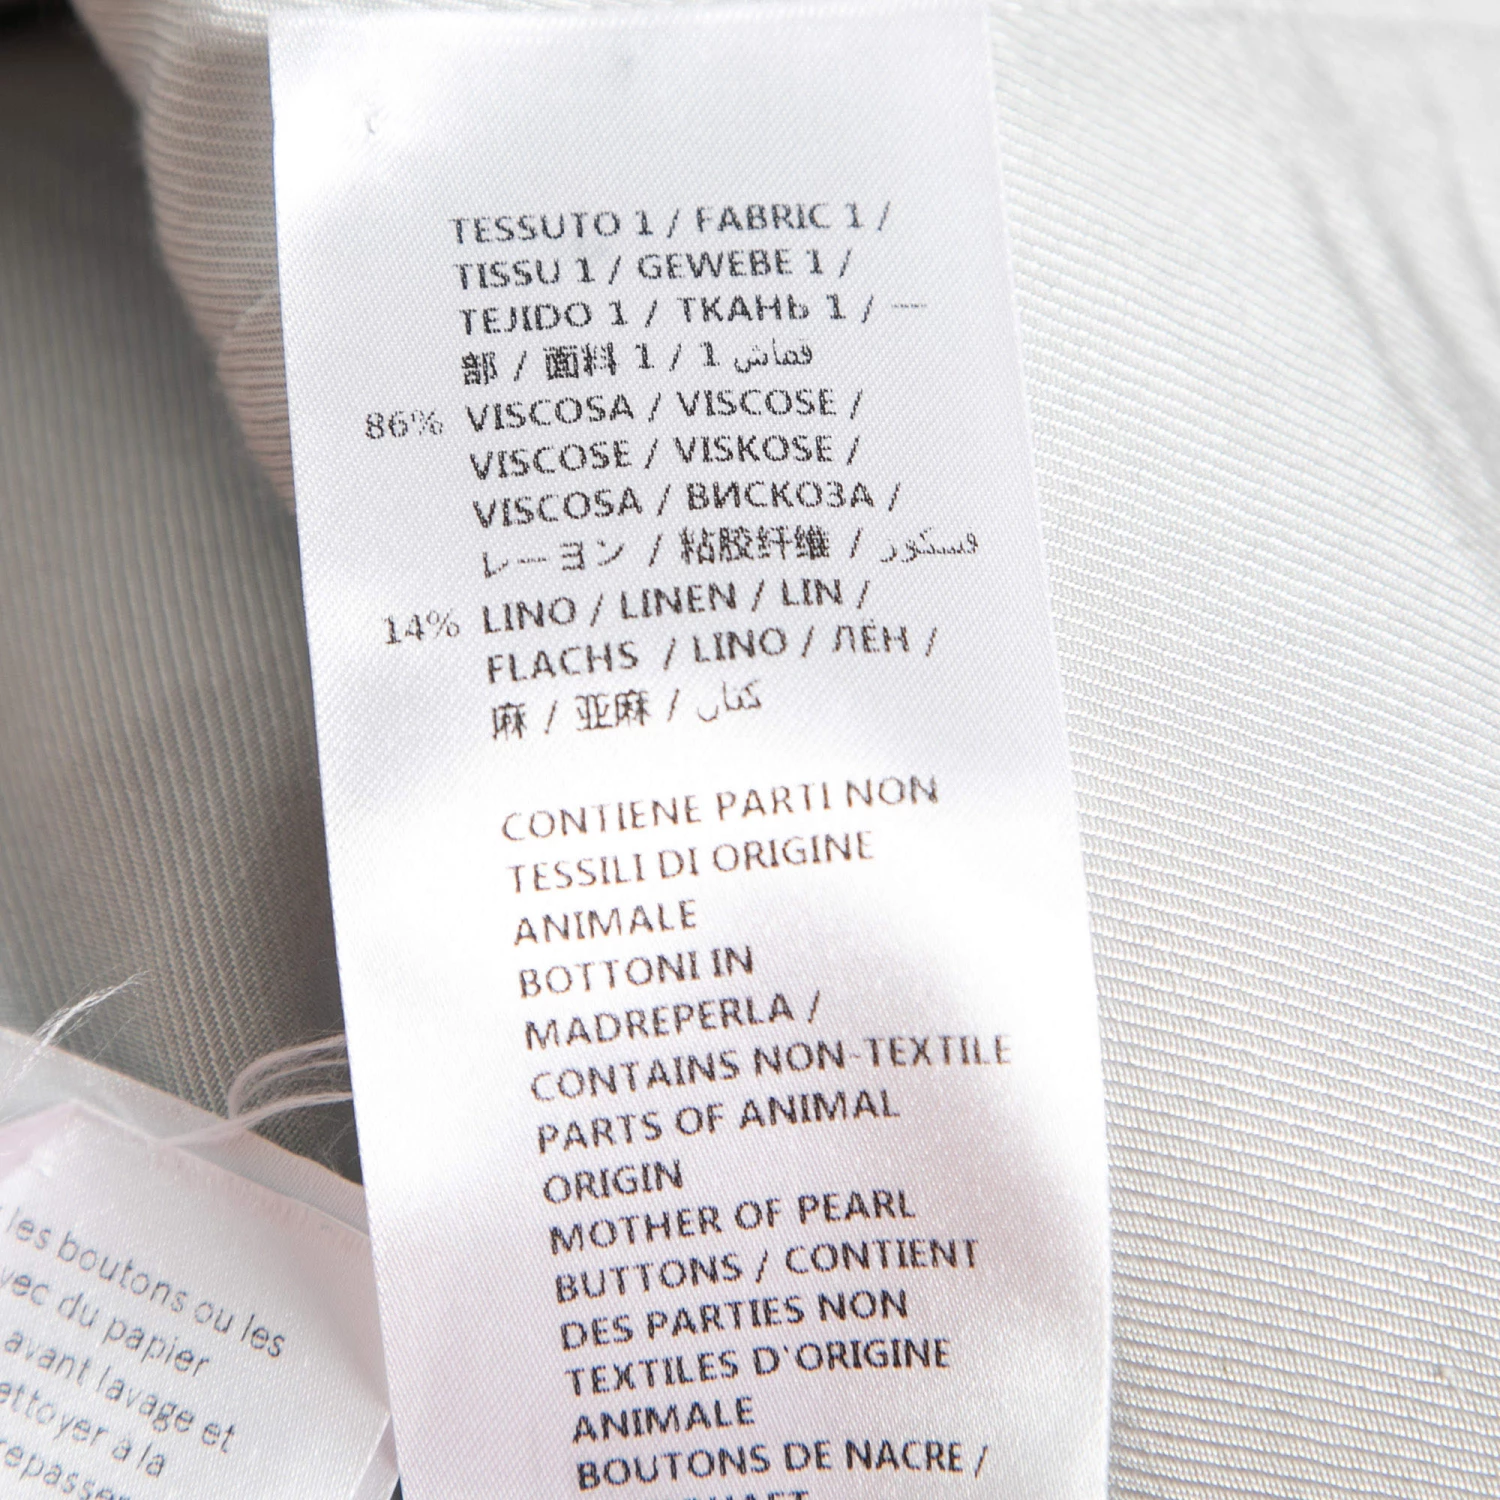 TESSUTO 1 / FABRIC 1 /
TISSU 1 / GEWEBE 1 /
TEJIDO 1 / ТКАНЬ 1 / 一
部 / 面料 1 / 1 قماش
86% VISCOSA / VISCOSE /
VISCOSE / VISKOSE /
VISCOSA / ВИСКОЗА /
レーヨン / 粘胶纤维 / فسكوز
14% LINO / LINEN / LIN /
FLACHS / LINO / ЛЁН /
麻 / 亚麻 / كتان
CONTIENE PARTI NON
TESSILI DI ORIGINE
ANIMALE
BOTTONI IN
MADREPERLA /
CONTAINS NON-TEXTILE
PARTS OF ANIMAL
ORIGIN
MOTHER OF PEARL
BUTTONS / CONTIENT
DES PARTIES NON
TEXTILES D'ORIGINE
ANIMALE
BOUTONS DE NACRE /
les boutons ou les
du papier
avant lavage et
à la